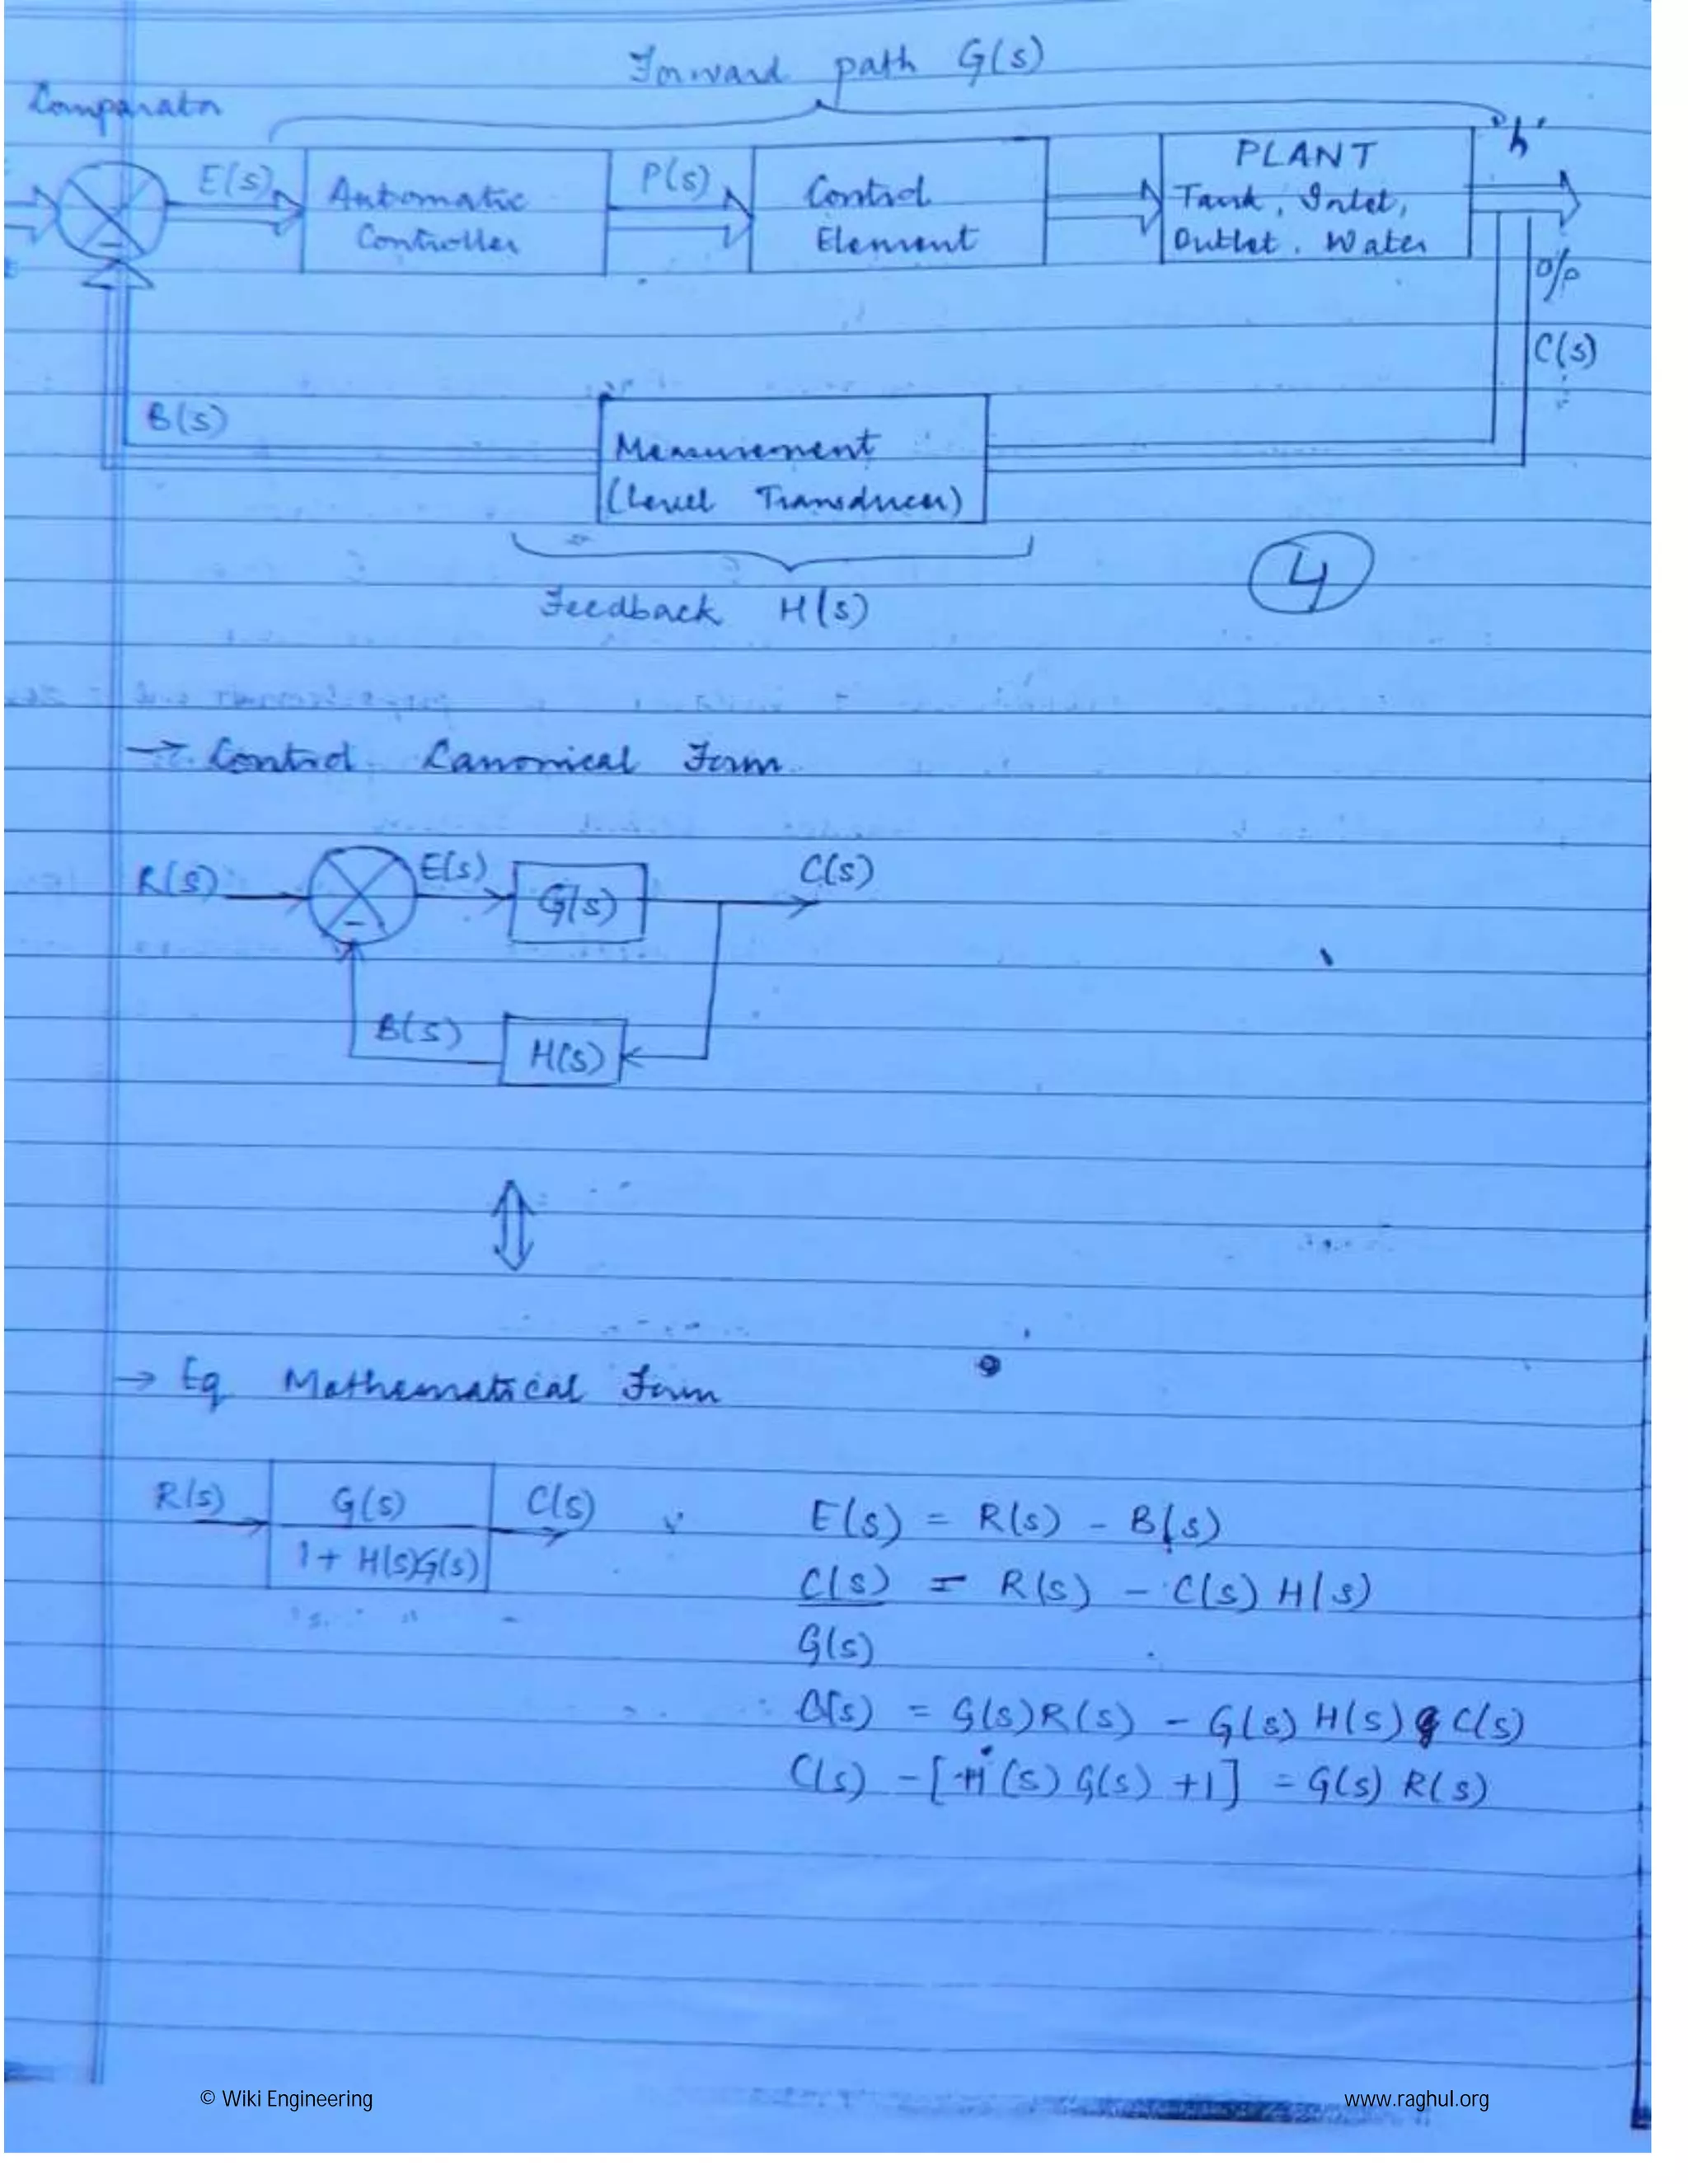 Forward path G(s)
Comparator
"h"
E(s)
Automatic
Controller
P(s)
Control
Element
PLANT
Tank, Inlet,
Outlet, Water
-
O/P
C(s)
B(s)
Measurement
(Level Transducer)
4
Feedback H(s)
→ Control Canonical Form
R(s)
E(s)
G(s)
C(s)
-
B(s)
H(s)
→ Eq Mathematical Form
R(s)
G(s)
1 + H(s)G(s)
C(s)
E(s) = R(s) - B(s)
C(s) = R(s) - C(s) H(s)
G(s)
C(s) = G(s)R(s) - G(s) H(s) C(s)
C(s) - [H(s) G(s) +1] = G(s) R(s)
© Wiki Engineering
www.raghul.org